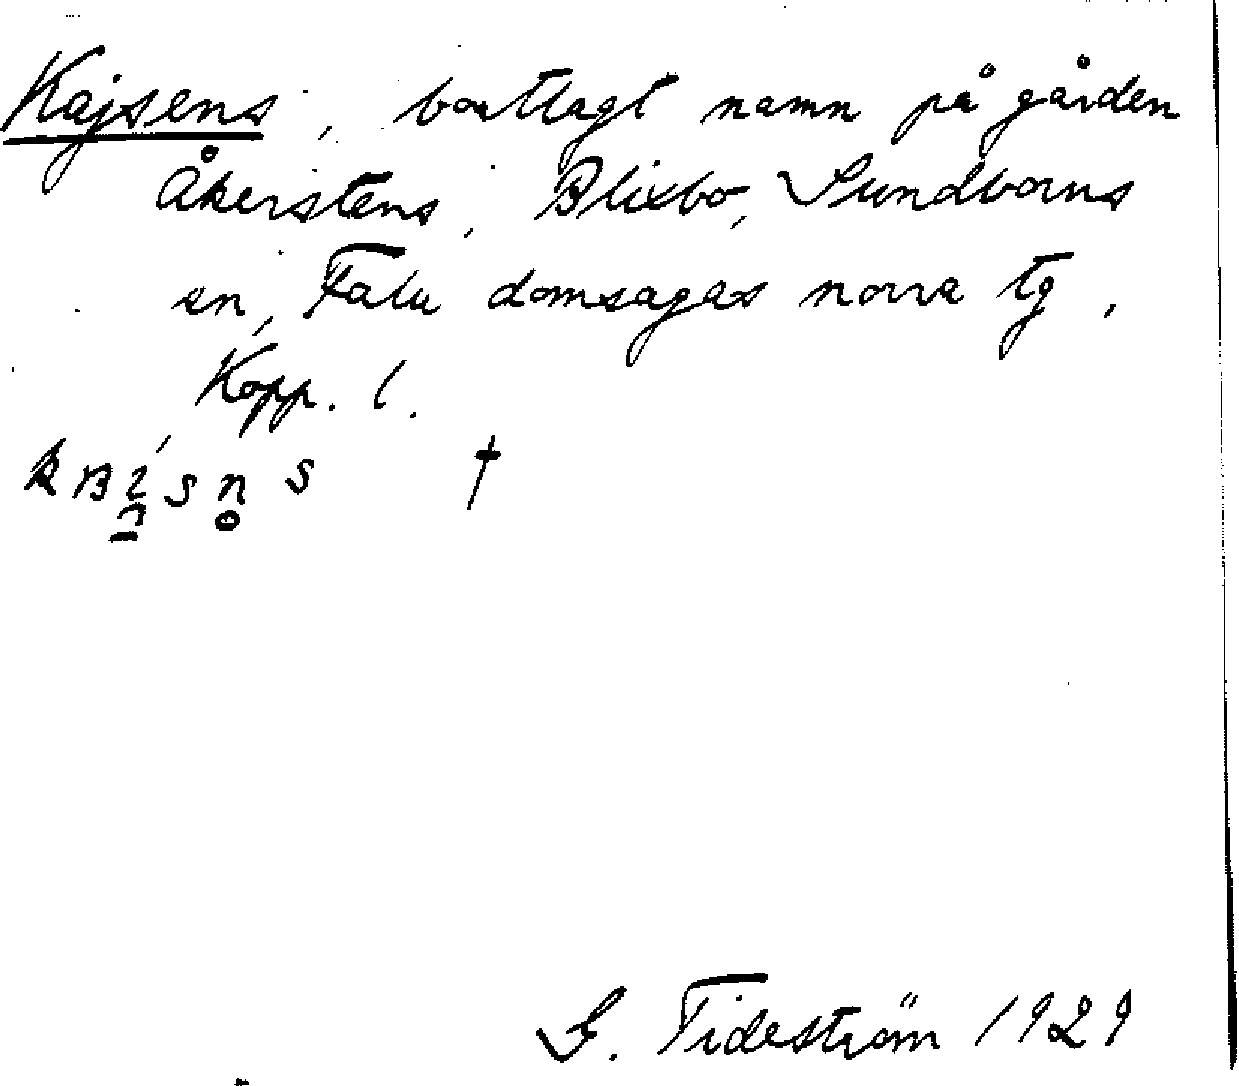 Kajsens, bortlagt namn på gården
Åkerstens, Blixbo, Sundborns
sn, Falu domsagas norra tg,
Kopp. l.
†
G. Tideström 1929